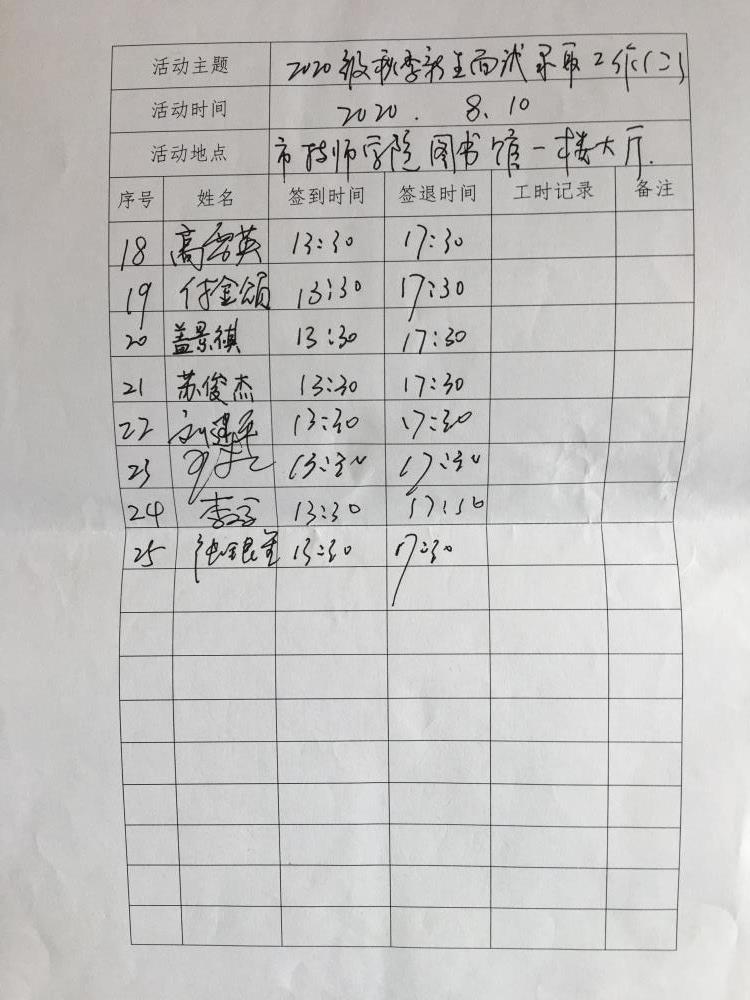 活动主题 2020级秋季新生面试录取工作(二)
活动时间 2020. 8.10
活动地点 市技师学院图书馆一楼大厅.
序号 姓名 签到时间 签退时间 工时记录 备注
18 高雪英 13:30 17:30
19 付金颂 13:30 17:30
20 盖景祺 13:30 17:30
21 苏俊杰 13:30 17:30
22 刘建军 13:30 17:30
23 13:30 17:30
24 李 13:30 17:30
25 张银笙 13:30 17:30